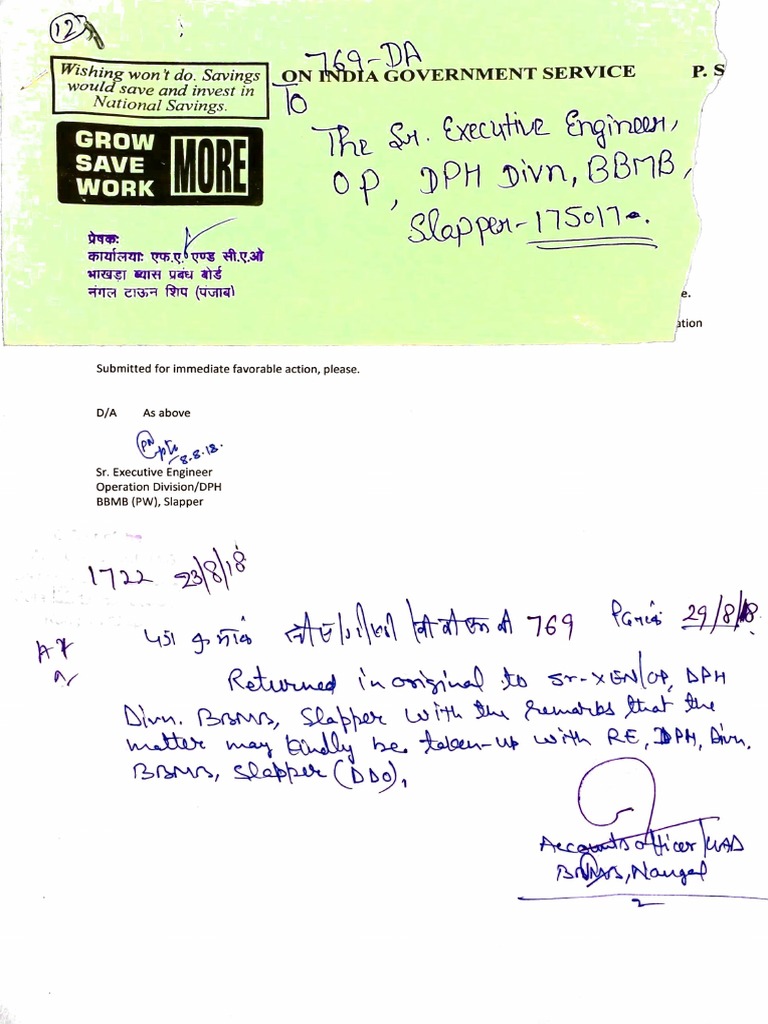 12
769-DA
Wishing won't do. Savings
would save and invest in
National Savings.
ON INDIA GOVERNMENT SERVICE
P. S
GROW
SAVE
WORK
MORE
To
The Sr. Executive Engineer,
OP, DPH Divn, BBMB,
Slapper-175017.
प्रेषकः
कार्यालयः एफ.ए. एण्ड सी.ए.ओ
भाखड़ा ब्यास प्रबंध बोर्ड
नंगल टाऊन शिप (पंजाब)
e.
ation
Submitted for immediate favorable action, please.
D/A As above
8.8.18.
Sr. Executive Engineer
Operation Division/DPH
BBMB (PW), Slapper
1722 23/8/18
769 29/8/18.
Returned in original to Sr-XEN/OP, DPH
Divn. BBMB, Slapper with the remarks that the
matter may kindly be taken-up with RE, DPH, Divn.
BBMB, Slapper (DDO),
Accounts officer/
BBMB, Nangal